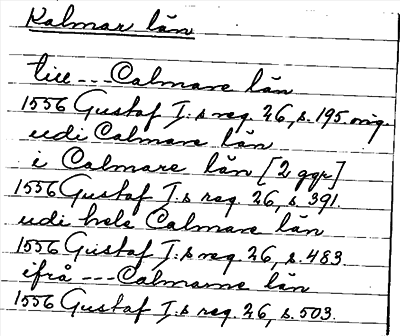 Kalmar län
till --- Calmare län
1556 Gustaf I:s reg. 26, s. 195. orig.
udi Calmare län
i Calmare län [2 ggr]
1556 Gustaf I:s reg. 26, s. 391.
udi hele Calmare län
1556 Gustaf I:s reg. 26, s. 483
ifrå --- Calmarne län
1556 Gustaf I:s reg. 26, s. 503.